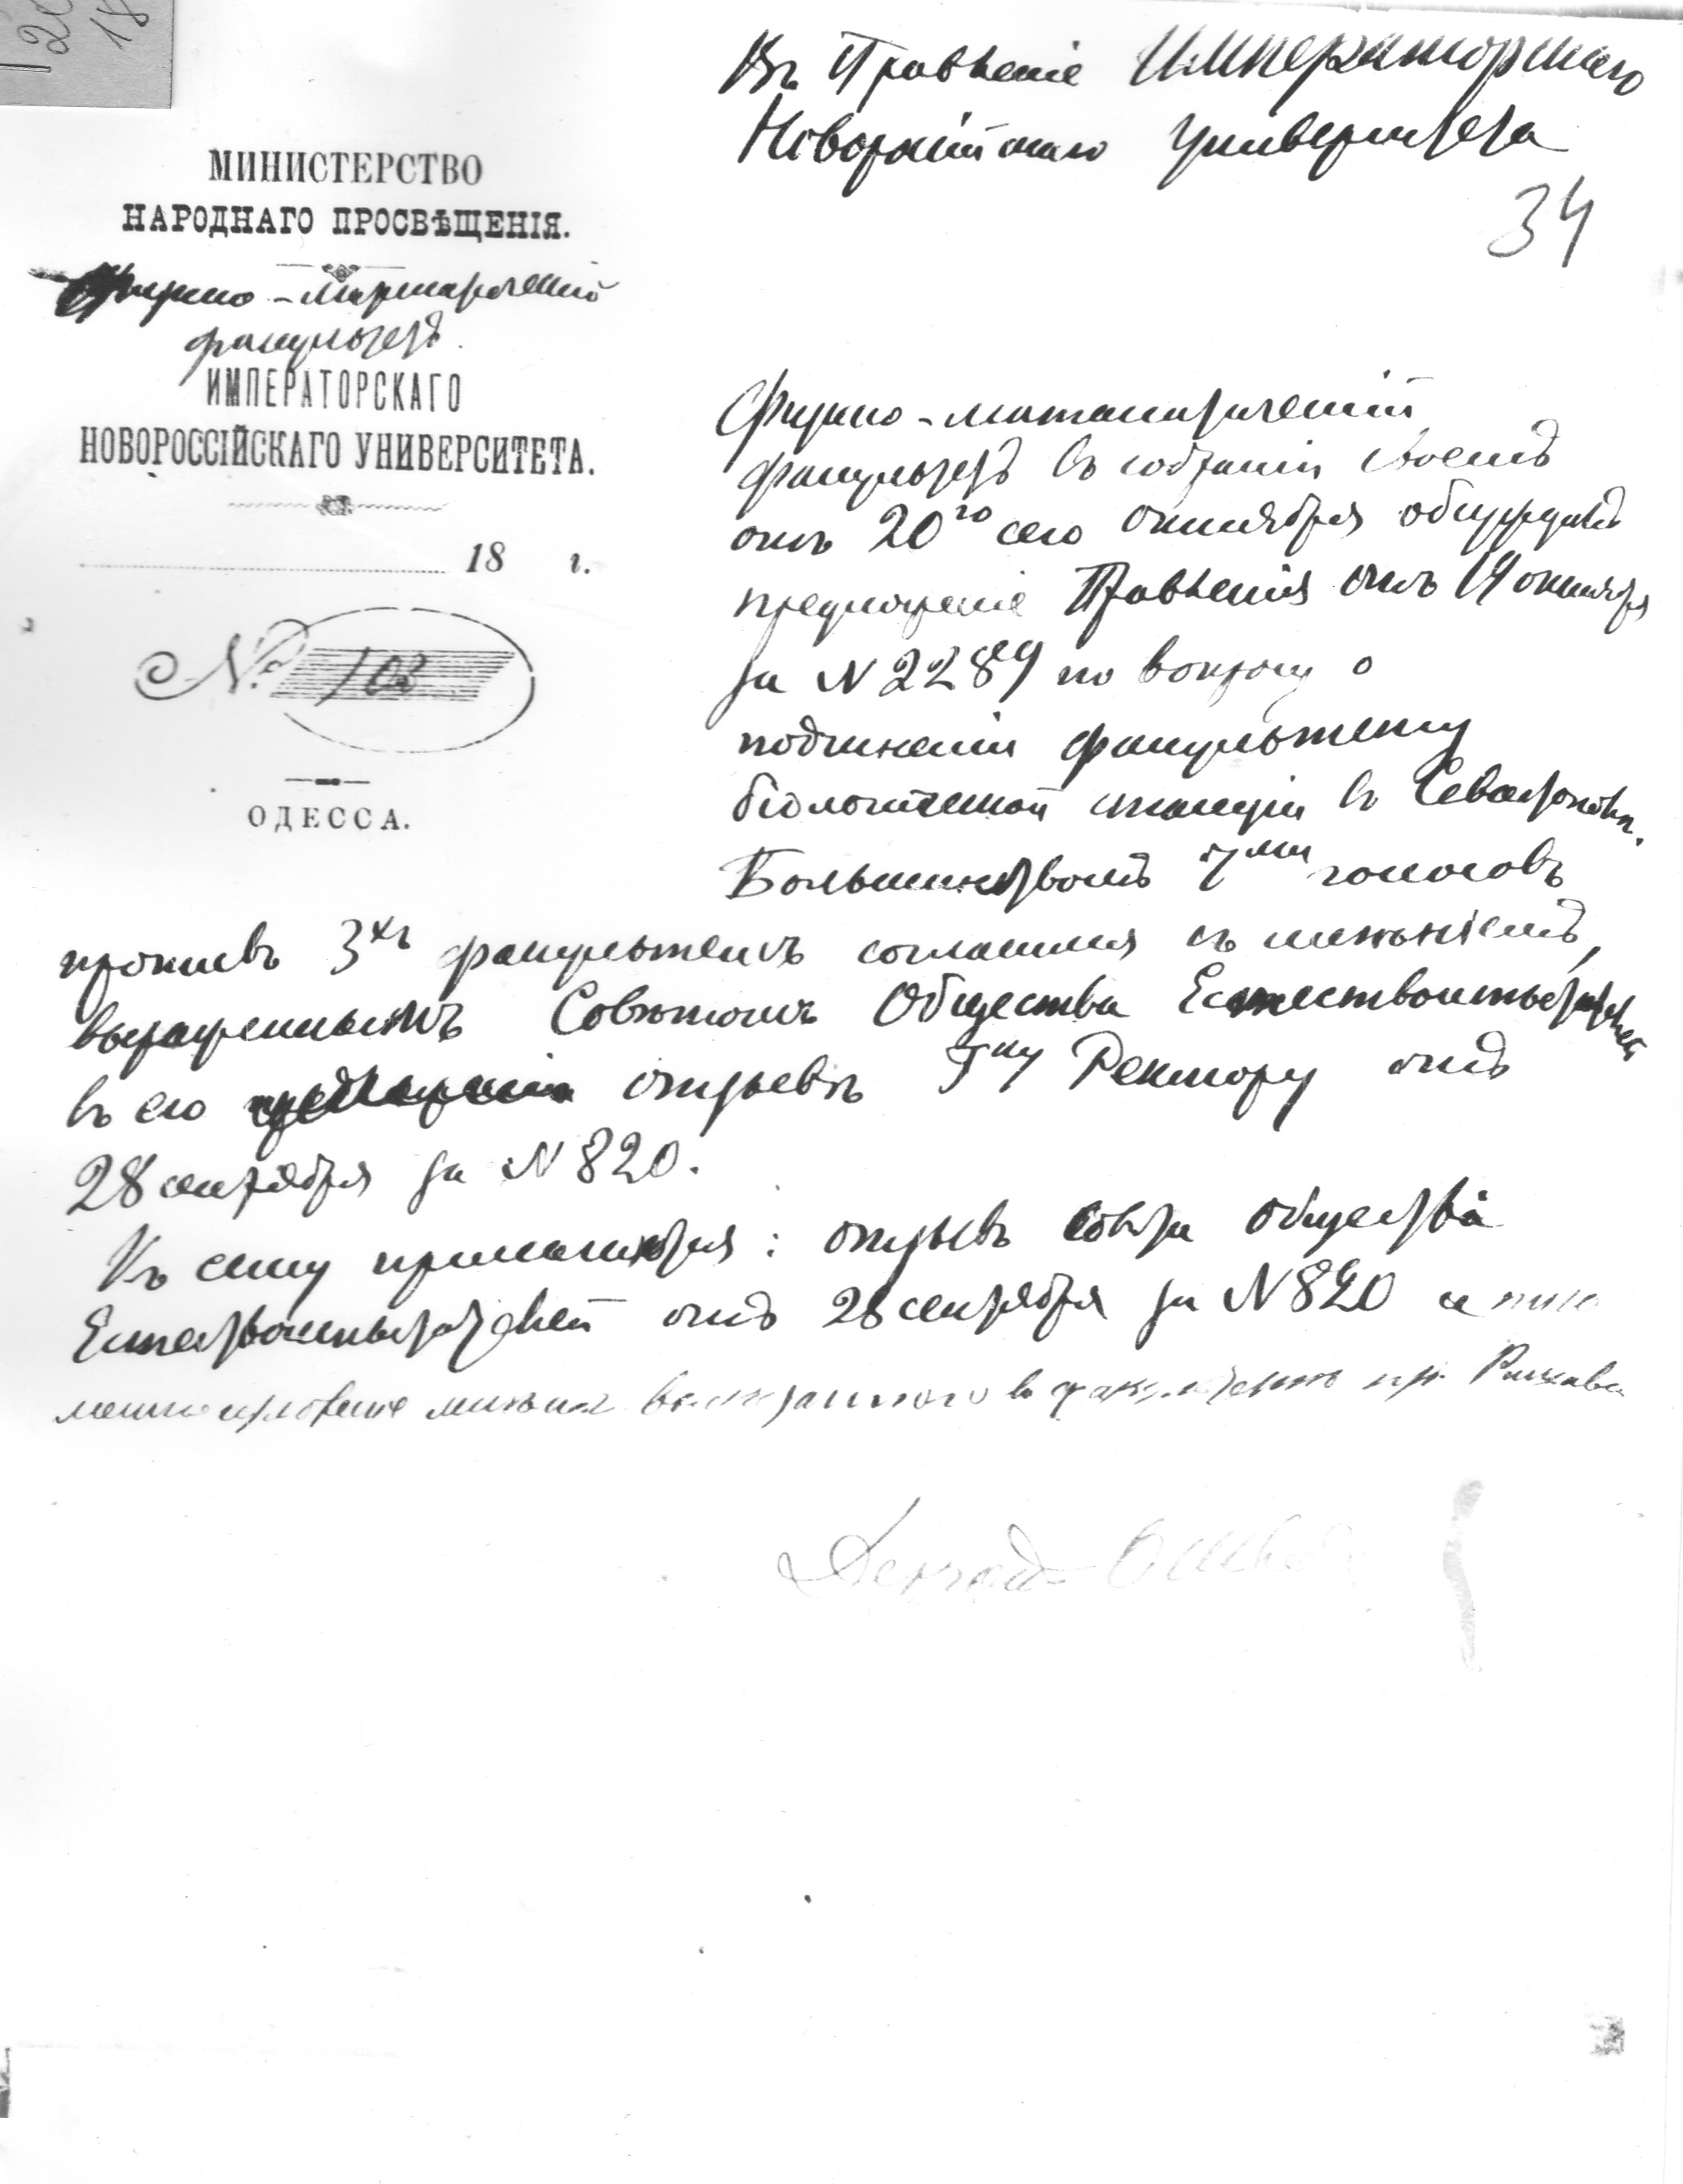 20
18
Въ Правленіе Императорскаго
Новороссійскаго Университета
34
МИНИСТЕРСТВО
НАРОДНАГО ПРОСВѢЩЕНІЯ.
Физико-математическій
факультетъ
ИМПЕРАТОРСКАГО
НОВОРОССІЙСКАГО УНИВЕРСИТЕТА.
18 г.
№ 103
ОДЕССА.
Физико-математическій
факультетъ въ собраніи своемъ
отъ 20го сего октября обсуждалъ
предложеніе Правленія отъ 19 октября
за N 2289 по вопросу о
подчиненіи факультету
біологической станціи въ Севастополѣ.
Большинствомъ 7ми голосовъ
противъ 3хъ факультетъ согласился съ мнѣніемъ,
выраженнымъ Совѣтомъ Общества Естествоиспытателей
въ его отзывѣ Гну Ректору отъ
28 сентября за N 820.
Къ сему прилагаются: отзывъ Совѣта Общества
Естествоиспытателей отъ 28 сентября за N 820 и
изложеніе мнѣнія въ факультетѣ пр.
Деканъ